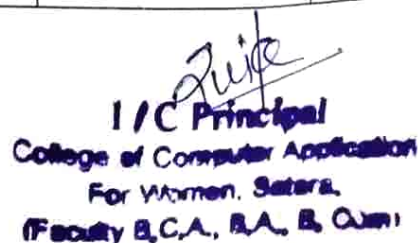 I/C Principal
College of Computer Application
For Women, Satara.
(Faculty B,C,A., B,A., B, Com)